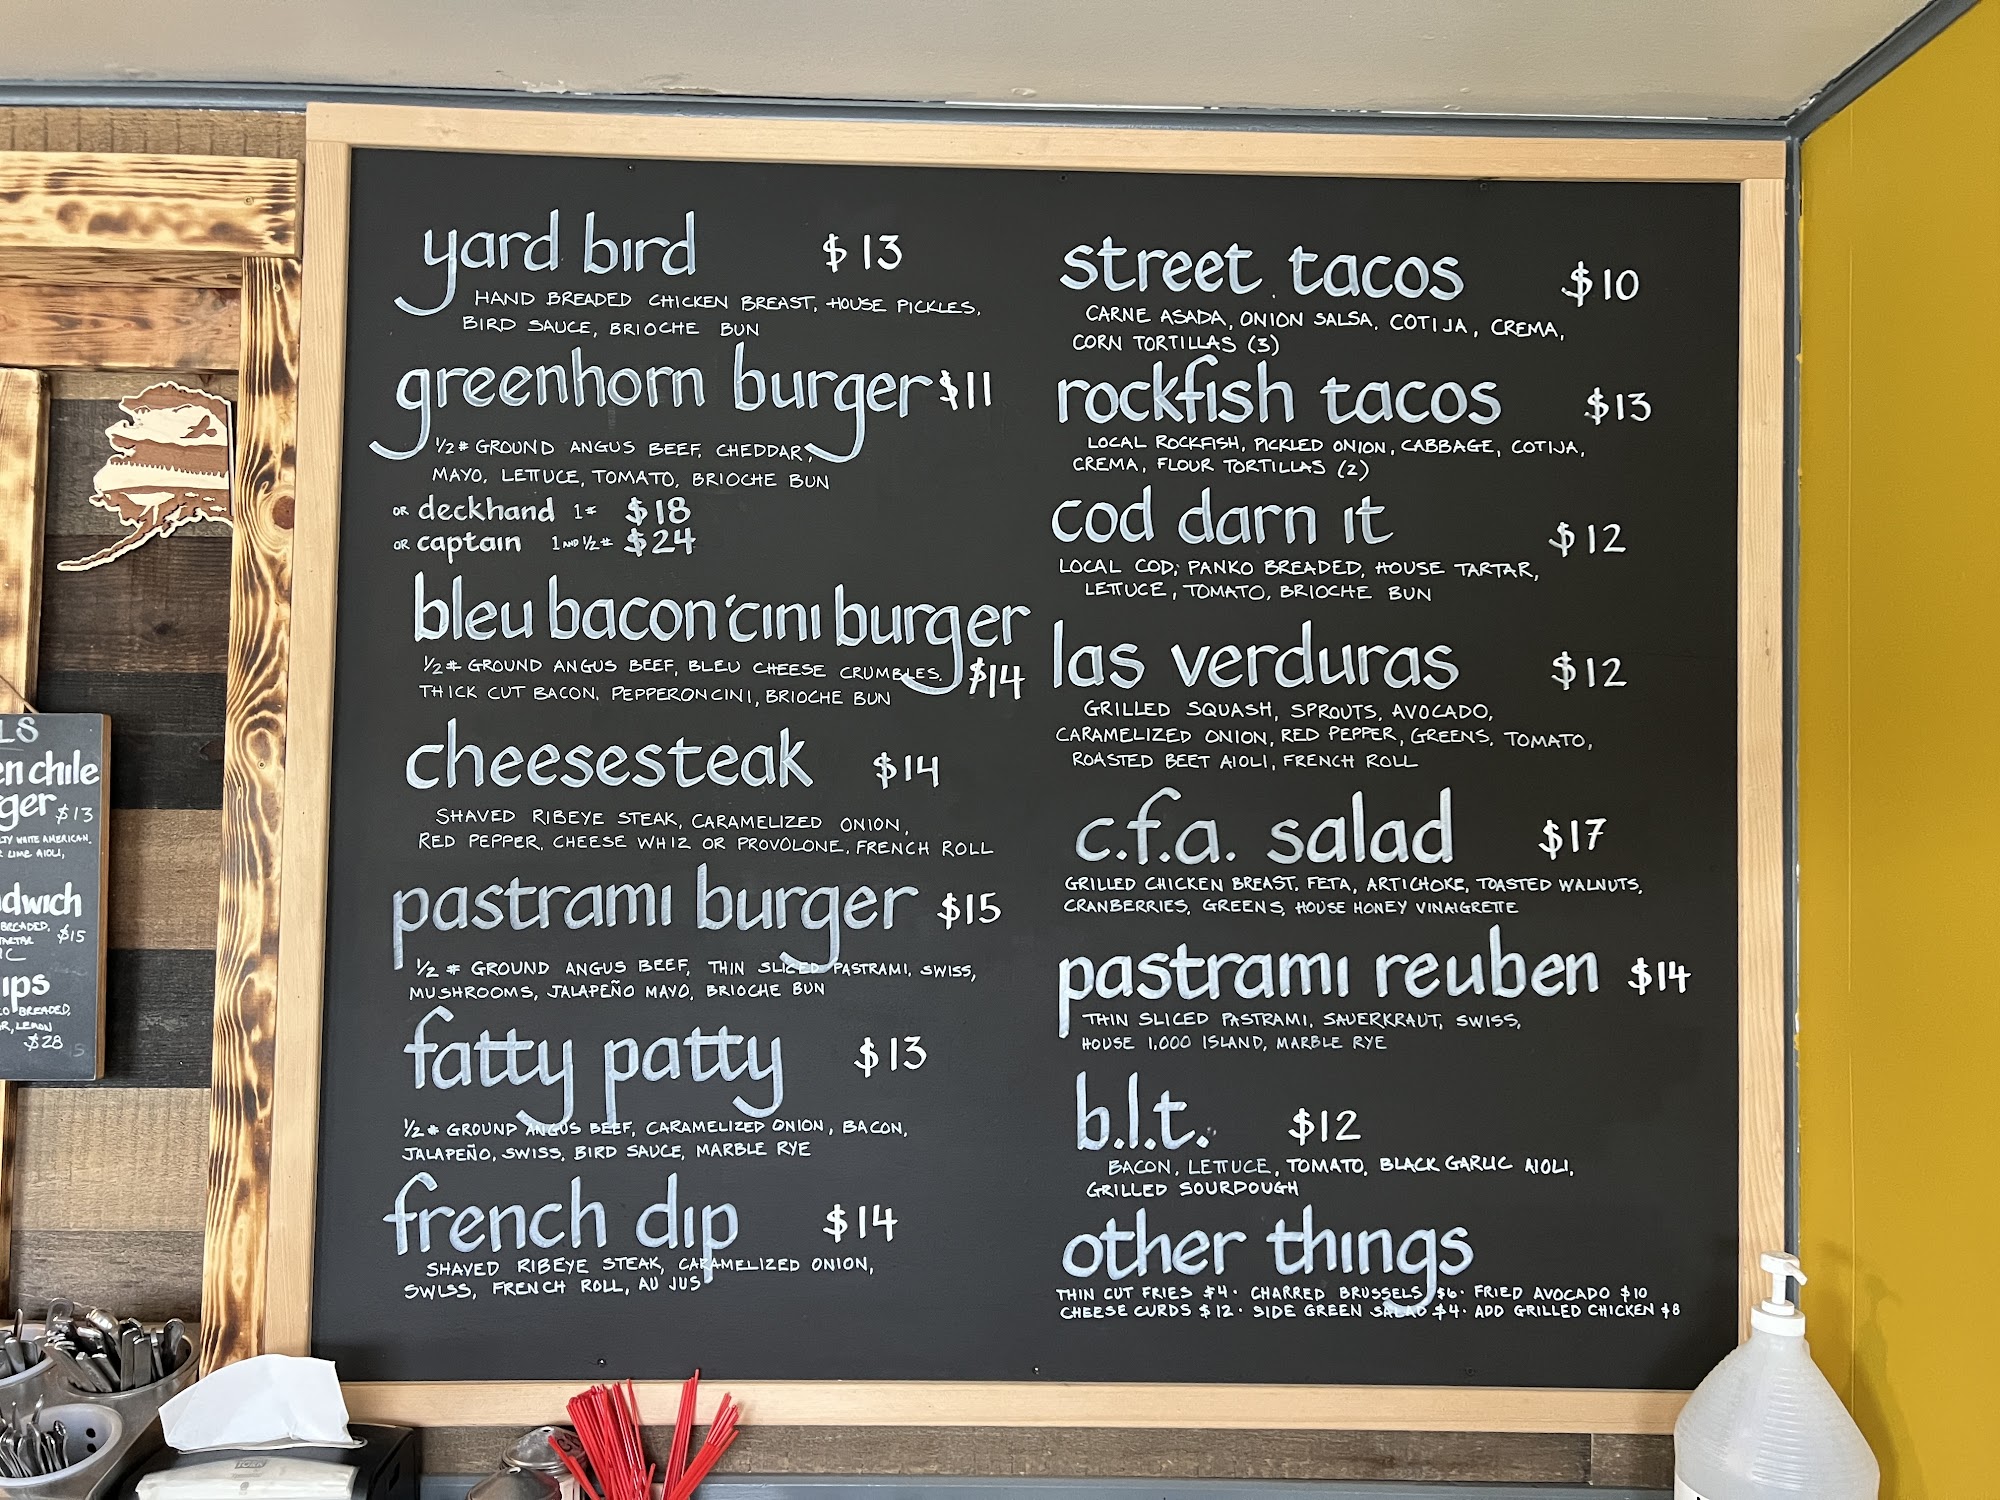 yard bird $13
HAND BREADED CHICKEN BREAST, HOUSE PICKLES,
BIRD SAUCE, BRIOCHE BUN
greenhorn burger $11
1/2# GROUND ANGUS BEEF, CHEDDAR,
MAYO, LETTUCE, TOMATO, BRIOCHE BUN
OR deckhand 1# $18
OR captain 1 AND 1/2# $24
bleu bacon 'cini burger
1/2# GROUND ANGUS BEEF, BLEU CHEESE CRUMBLES, $14
THICK CUT BACON, PEPPERONCINI, BRIOCHE BUN
cheesesteak $14
SHAVED RIBEYE STEAK, CARAMELIZED ONION,
RED PEPPER, CHEESE WHIZ OR PROVOLONE, FRENCH ROLL
pastrami burger $15
1/2 # GROUND ANGUS BEEF, THIN SLICED PASTRAMI, SWISS,
MUSHROOMS, JALAPEÑO MAYO, BRIOCHE BUN
fatty patty $13
1/2# GROUND ANGUS BEEF, CARAMELIZED ONION, BACON,
JALAPEÑO, SWISS, BIRD SAUCE, MARBLE RYE
french dip $14
SHAVED RIBEYE STEAK, CARAMELIZED ONION,
SWISS, FRENCH ROLL, AU JUS
street tacos $10
CARNE ASADA, ONION SALSA, COTIJA, CREMA,
CORN TORTILLAS (3)
rockfish tacos $13
LOCAL ROCKFISH, PICKLED ONION, CABBAGE, COTIJA,
CREMA, FLOUR TORTILLAS (2)
cod darn it $12
LOCAL COD, PANKO BREADED, HOUSE TARTAR,
LETTUCE, TOMATO, BRIOCHE BUN
las verduras $12
GRILLED SQUASH, SPROUTS, AVOCADO,
CARAMELIZED ONION, RED PEPPER, GREENS, TOMATO,
ROASTED BEET AIOLI, FRENCH ROLL
c.f.a. salad $17
GRILLED CHICKEN BREAST, FETA, ARTICHOKE, TOASTED WALNUTS,
CRANBERRIES, GREENS, HOUSE HONEY VINAIGRETTE
pastrami reuben $14
THIN SLICED PASTRAMI, SAUERKRAUT, SWISS,
HOUSE 1,000 ISLAND, MARBLE RYE
b.l.t. $12
BACON, LETTUCE, TOMATO, BLACK GARLIC AIOLI,
GRILLED SOURDOUGH
other things
THIN CUT FRIES $4 · CHARRED BRUSSELS $6 · FRIED AVOCADO $10
CHEESE CURDS $12 · SIDE GREEN SALAD $4 · ADD GRILLED CHICKEN $8
LS
en chile
ger $13
WHITE AMERICAN,
LIME AIOLI,
dwich
BREADED,
TARTAR $15
ips
BREADED,
LEMON
$28